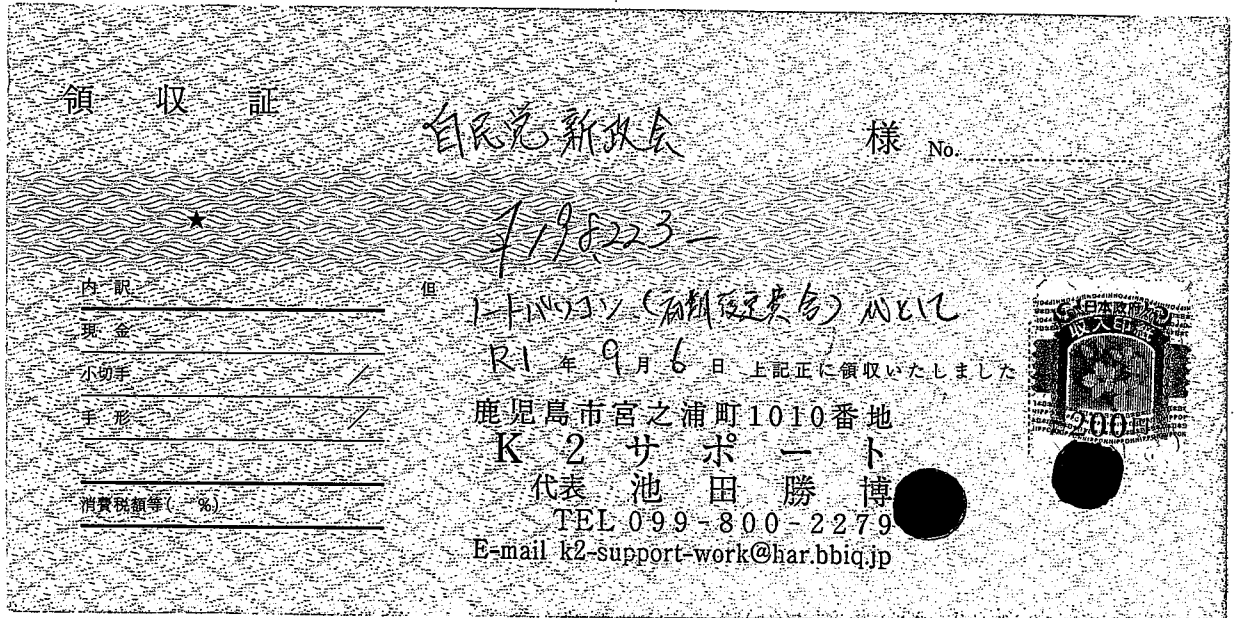 領収証
自民党新政会 様 No.
★
¥198,223-
内訳
現金
小切手
手形
消費税額等( %)
但 ノートパソコン(初期設定費含)代として
R1年9月6日 上記正に領収いたしました
鹿児島市宮之浦町1010番地
K2サポート
代表 池田勝博
TEL 099-800-2279
E-mail k2-support-work@har.bbiq.jp
日本政府
収入印紙
200